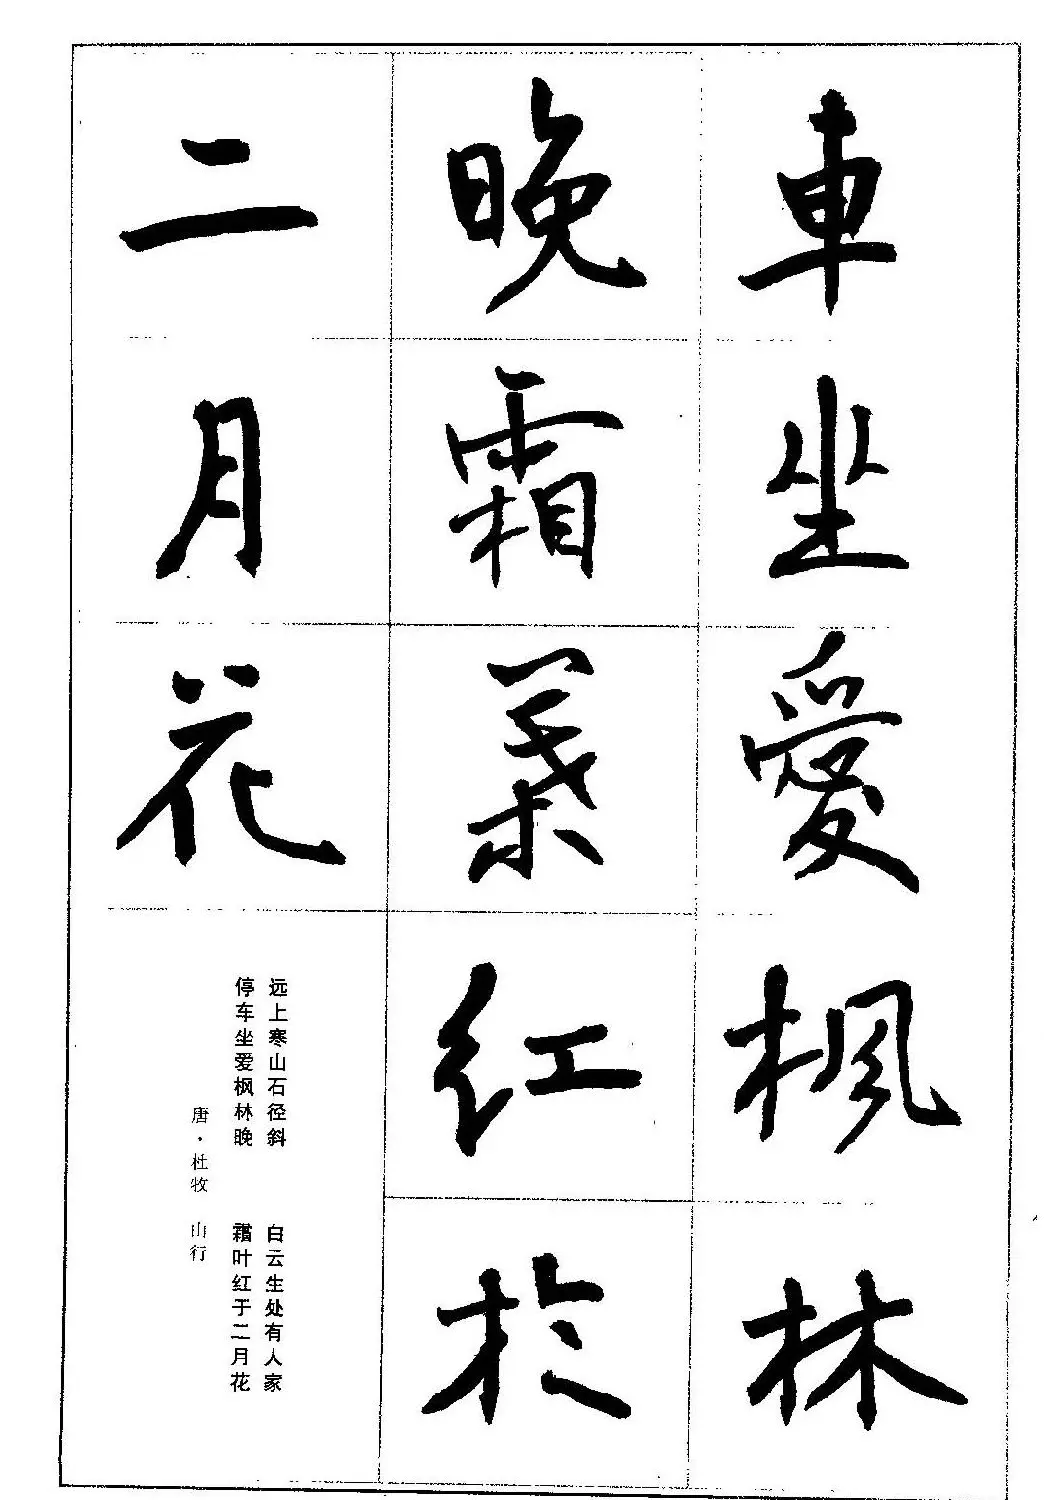 車坐愛枫林
晚霜葉红於
二月花
远上寒山石径斜 白云生处有人家
停车坐爱枫林晚 霜叶红于二月花
唐·杜牧 山行